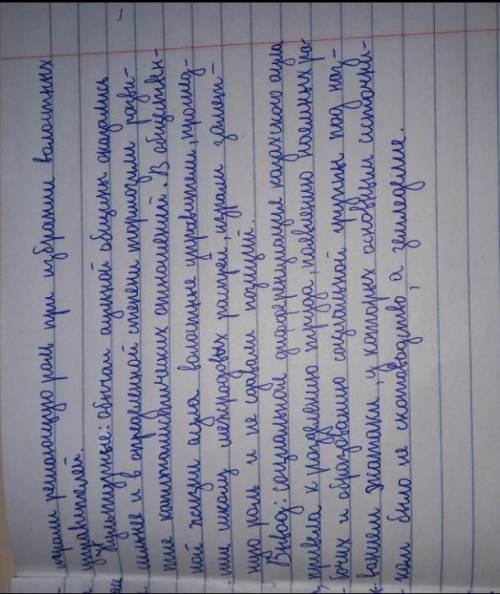 играли решающую роль при избрании волостных
управителей.
Культурные: обычаи аульной общины оказались
сильнее и в определенной степени тормозили разви-
тие капиталистических отношений. В обществен-
ной жизни аула волостные управители, прошед-
шие школу межродовых распрей, играли замет-
ную роль и не сдавали позиций.
Вывод: социальной дифференциация казахского аула
привела к разделению труда, появлению наемных ра-
бочих и образованию социальной группы под наз-
ванием жатаки, у которых основным источни-
ком было не скотоводство, а земледелие.